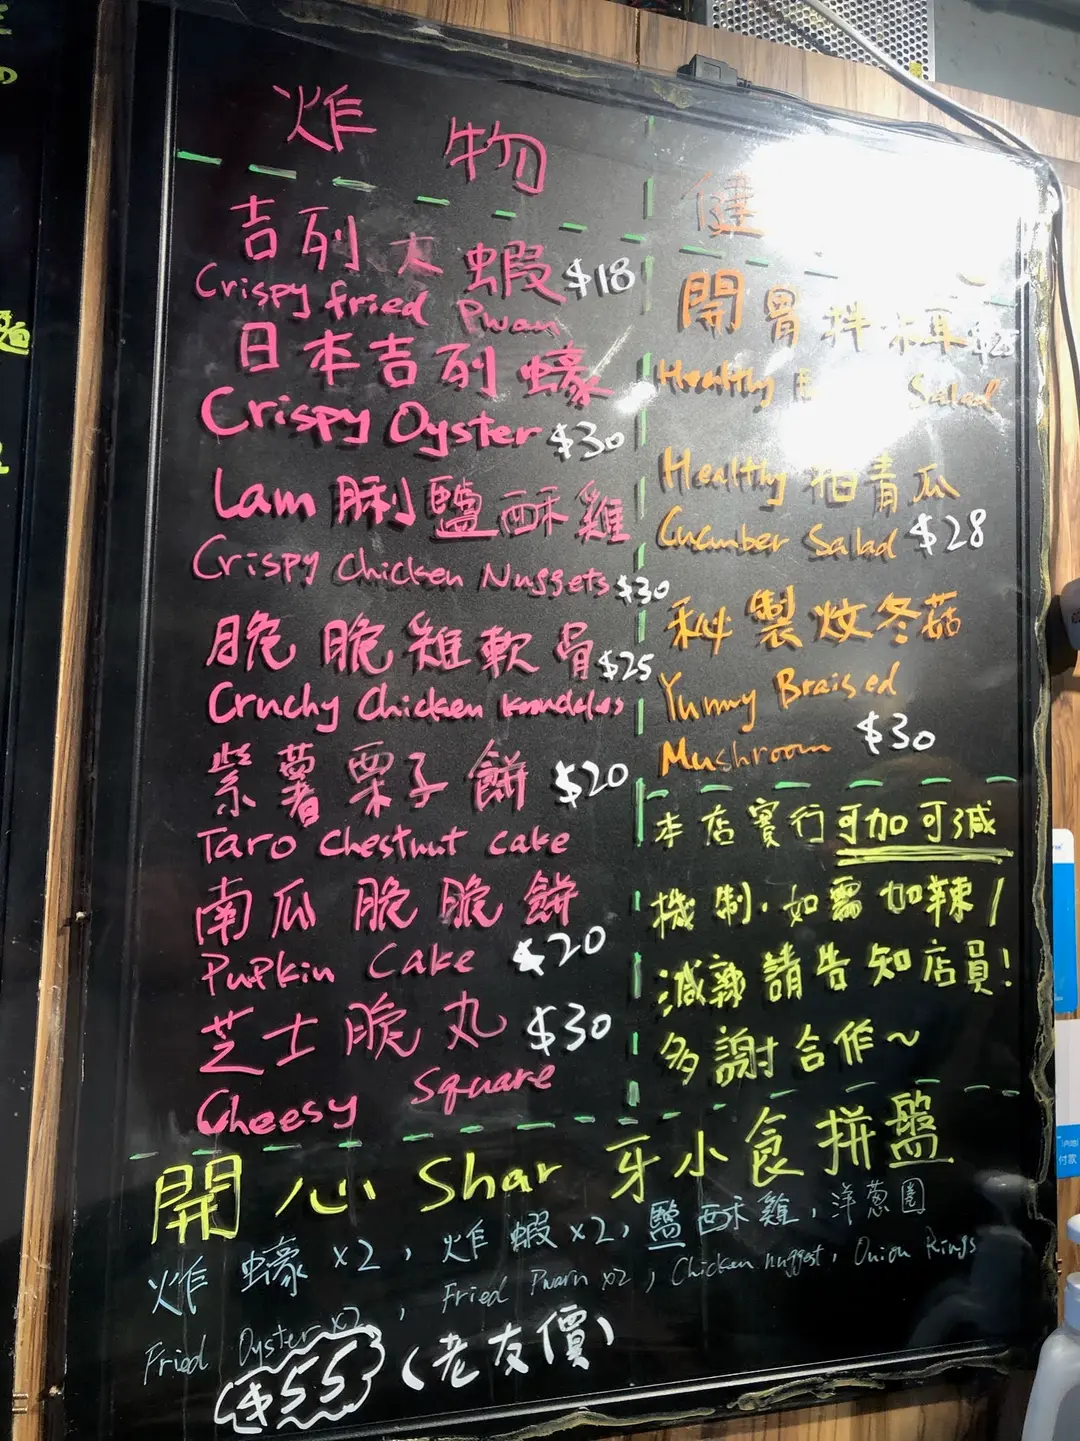 炸物
吉列大蝦 $18
Crispy fried Pwan
日本吉列蠔
Crispy Oyster $30
Lam脷鹽酥雞
Crispy Chicken Nuggets $30
脆脆雞軟骨 $25
Cruchy Chicken
紫薯栗子餅 $20
Taro Chestnut cake
南瓜脆脆餅
PuPkin Cake $20
芝士脆丸 $30
Cheesy Square
健
開胃拌木耳
Healthy Salad
Healthy 拍青瓜
Cucumber Salad $28
秘製炆冬菇
Yummy Braised
Mushroom $30
本店實行可加可減
機制，如需加辣/
減辣請告知店員!
多謝合作~
開心Shar牙小食拼盤
炸蠔x2，炸蝦x2，鹽酥雞，洋蔥圈
Fried Oyster x2，Fried Pwarn x2，Chicken nuggest，Onion Rings
$55（老友價）